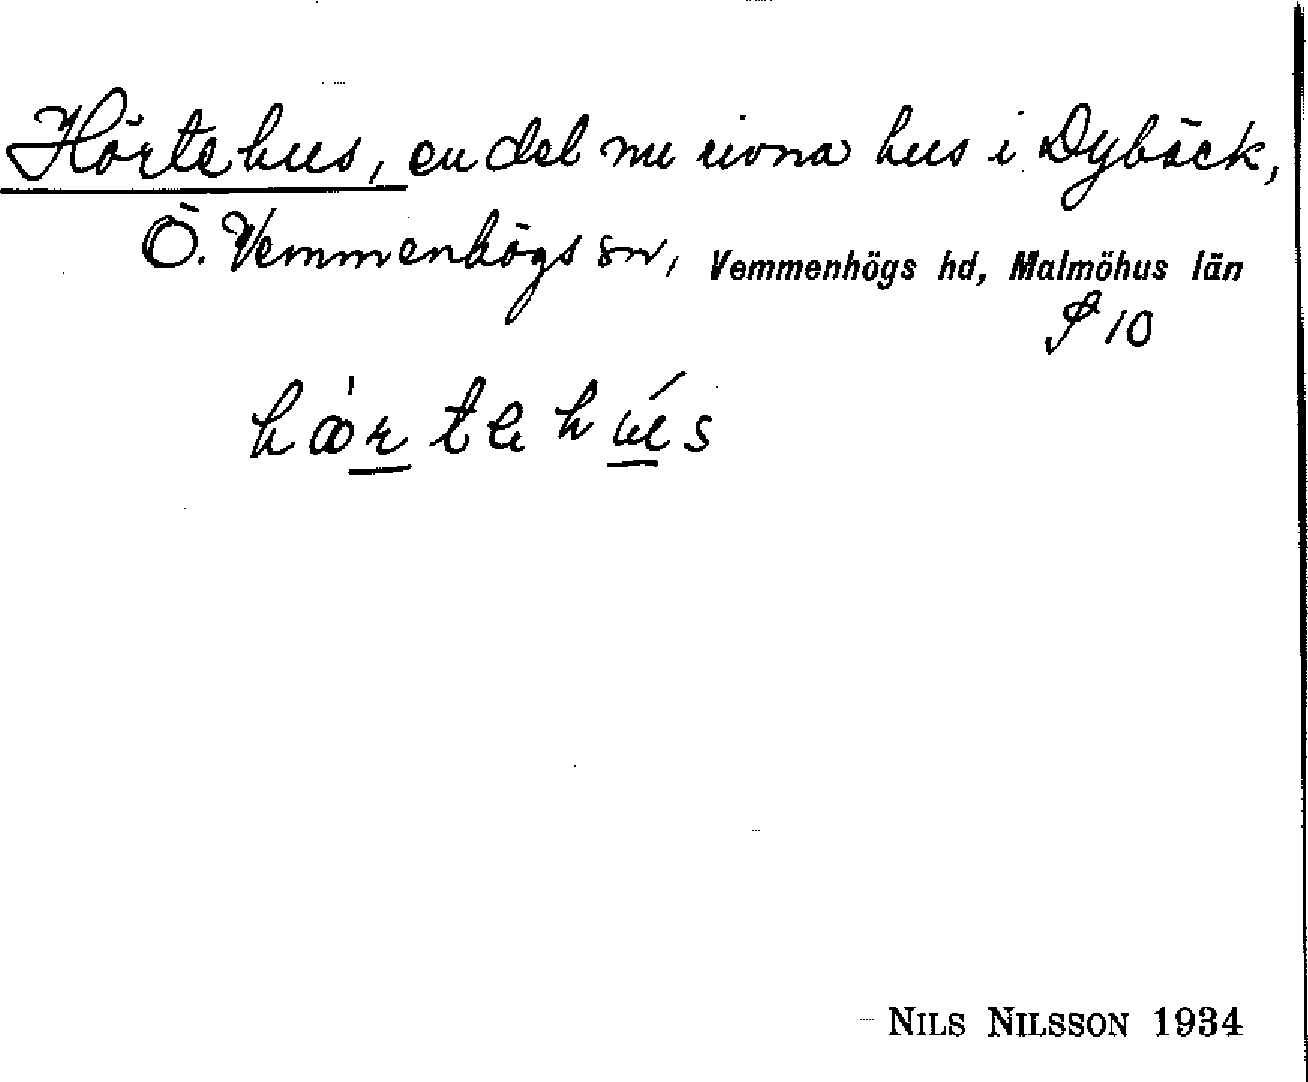 Hörtehus, en del nu rivna hus i Dybäck,
Ö. Vemmenhögs sn, Vemmenhögs hd, Malmöhus län
S 10
NILS NILSSON 1934